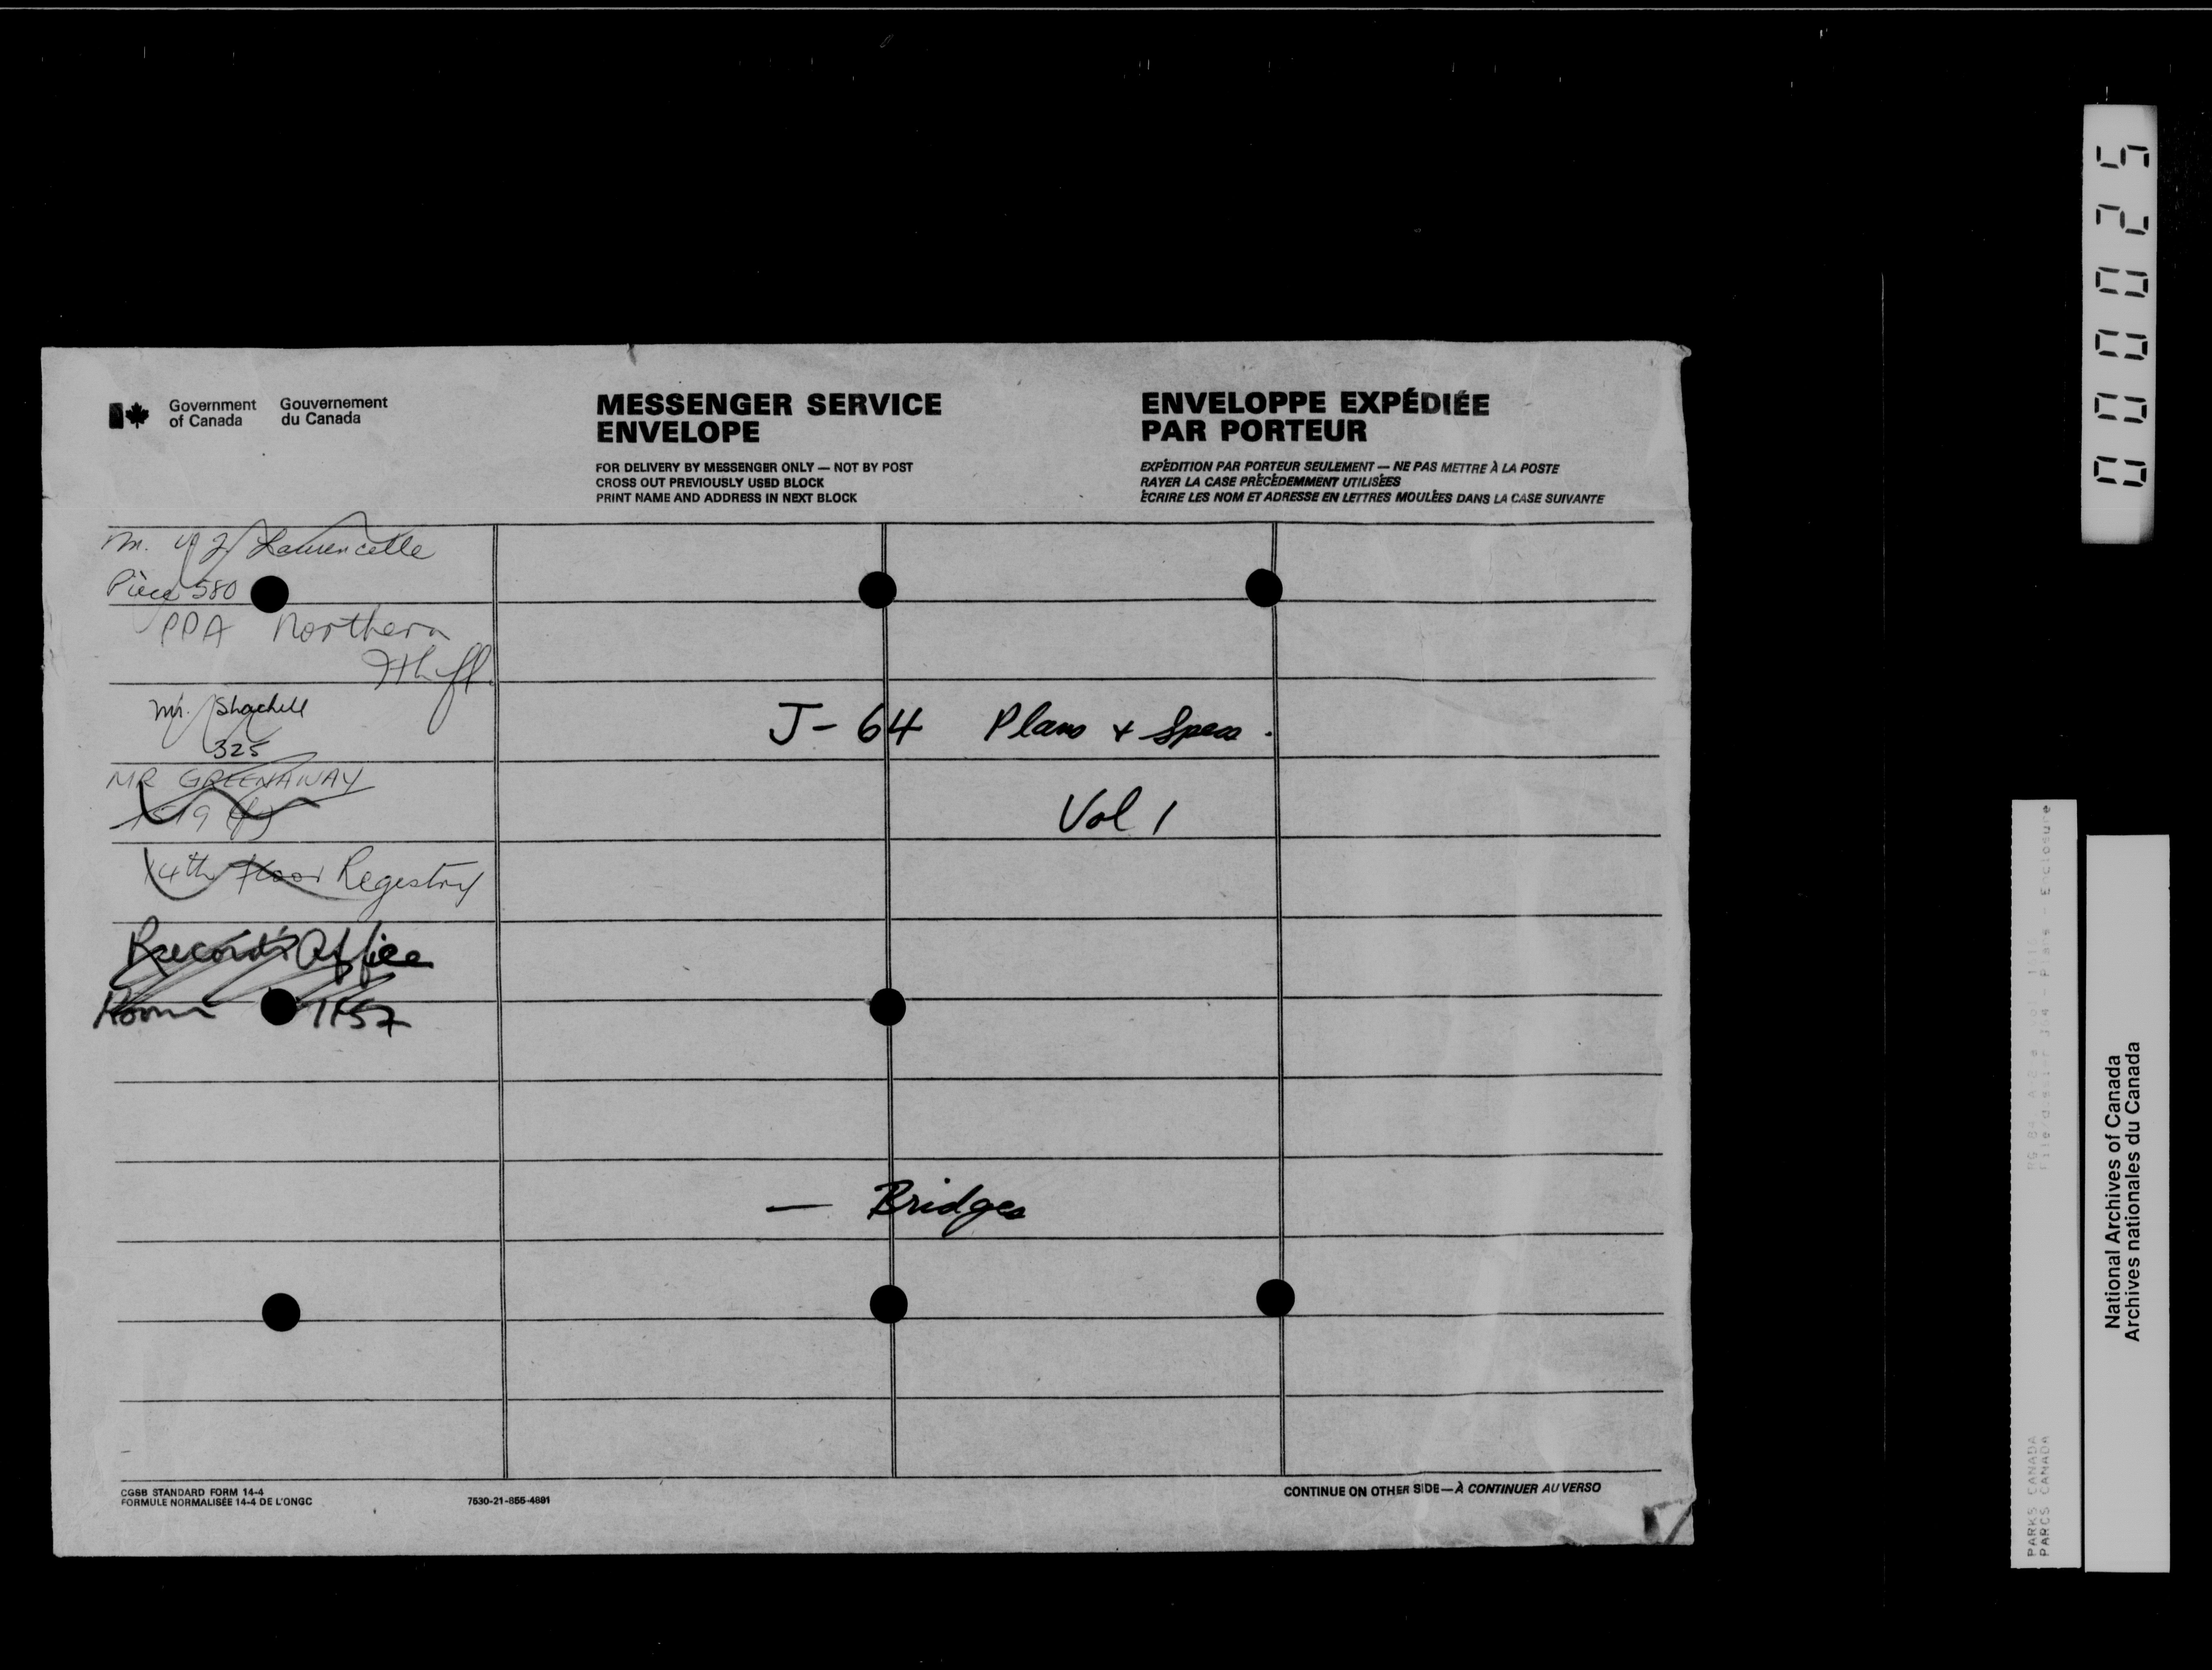 Government of Canada
Gouvernement du Canada
MESSENGER SERVICE
ENVELOPE
FOR DELIVERY BY MESSENGER ONLY — NOT BY POST
CROSS OUT PREVIOUSLY USED BLOCK
PRINT NAME AND ADDRESS IN NEXT BLOCK
ENVELOPPE EXPÉDIÉE
PAR PORTEUR
EXPÉDITION PAR PORTEUR SEULEMENT — NE PAS METTRE À LA POSTE
RAYER LA CASE PRÉCÉDEMMENT UTILISÉES
ÉCRIRE LES NOM ET ADRESSE EN LETTRES MOULÉES DANS LA CASE SUIVANTE
M. Laurencelle
Pièce 580
PPA Northern
Mr.
325
MR GREENAWAY
14th Floor Registry
Records Office
Room 1157
J-64 Plans + Specs.
Vol 1
— Bridges
CGSB STANDARD FORM 14-4
FORMULE NORMALISÉE 14-4 DE L'ONGC
7530-21-855-4891
CONTINUE ON OTHER SIDE — À CONTINUER AU VERSO
000025
Plans - Enclosure
PARKS CANADA
PARCS CANADA
National Archives of Canada
Archives nationales du Canada